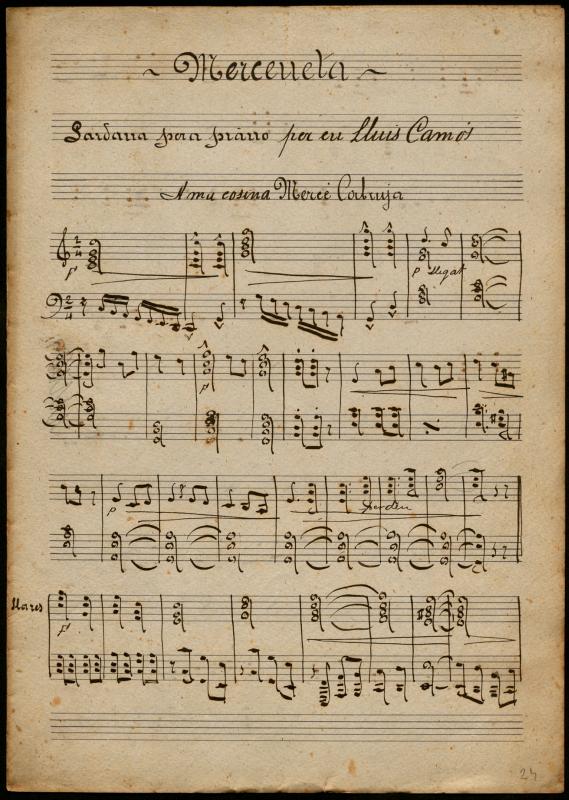 ~ Merceneta ~
Sardana pera piano per en Lluis Camós
A ma cosina Mercé
2/4
p
p lligat
2/4
p
p
perden
Llares
p
24